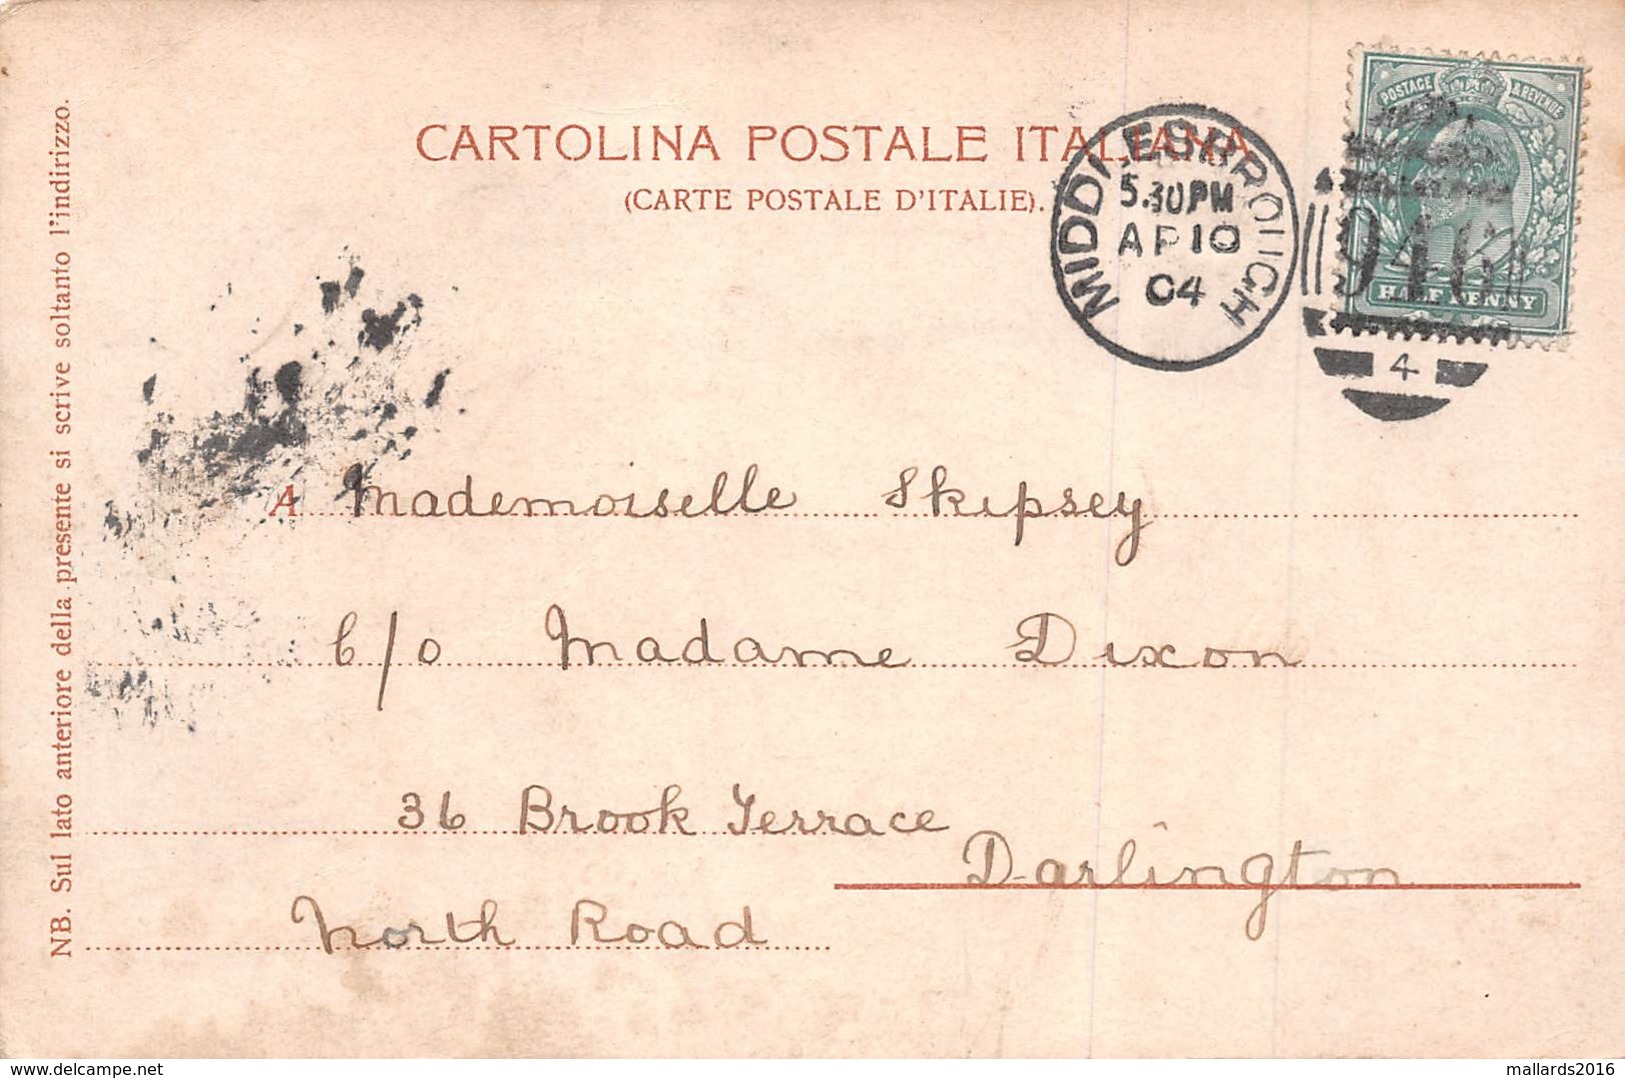 CARTOLINA POSTALE ITALIANA
(CARTE POSTALE D'ITALIE).
MIDDLESBROUGH
5.30PM
AP10
04
POSTAGE & REVENUE
946
HALF PENNY
4
A Mademoiselle Skipsey
C/o Madame Dixon
36 Brook Terrace
Darlington
North Road
NB. Sul lato anteriore della presente si scrive soltanto l'indirizzo.
delcampe.net
mallards2016